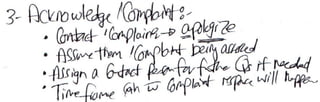 3- Acknowledge 'Complaint :-
• Contact 'Complaine → apologize
• Assure them 'Complaint being assessed
• Assign a Contact person for further Qs if needed
• Time frame Complaint response will happen